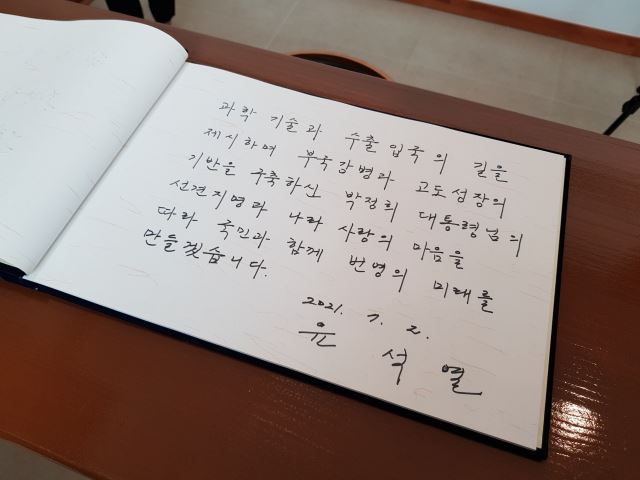 과학 기술과 수출 입국의 길을
제시하며 부국강병과 고도성장의
기반을 구축하신 박정희 대통령님의
선견지명과 나라 사랑의 마음을
따라 국민과 함께 번영의 미래를
만들겠습니다.
2021. 7. 2.
윤 석 열